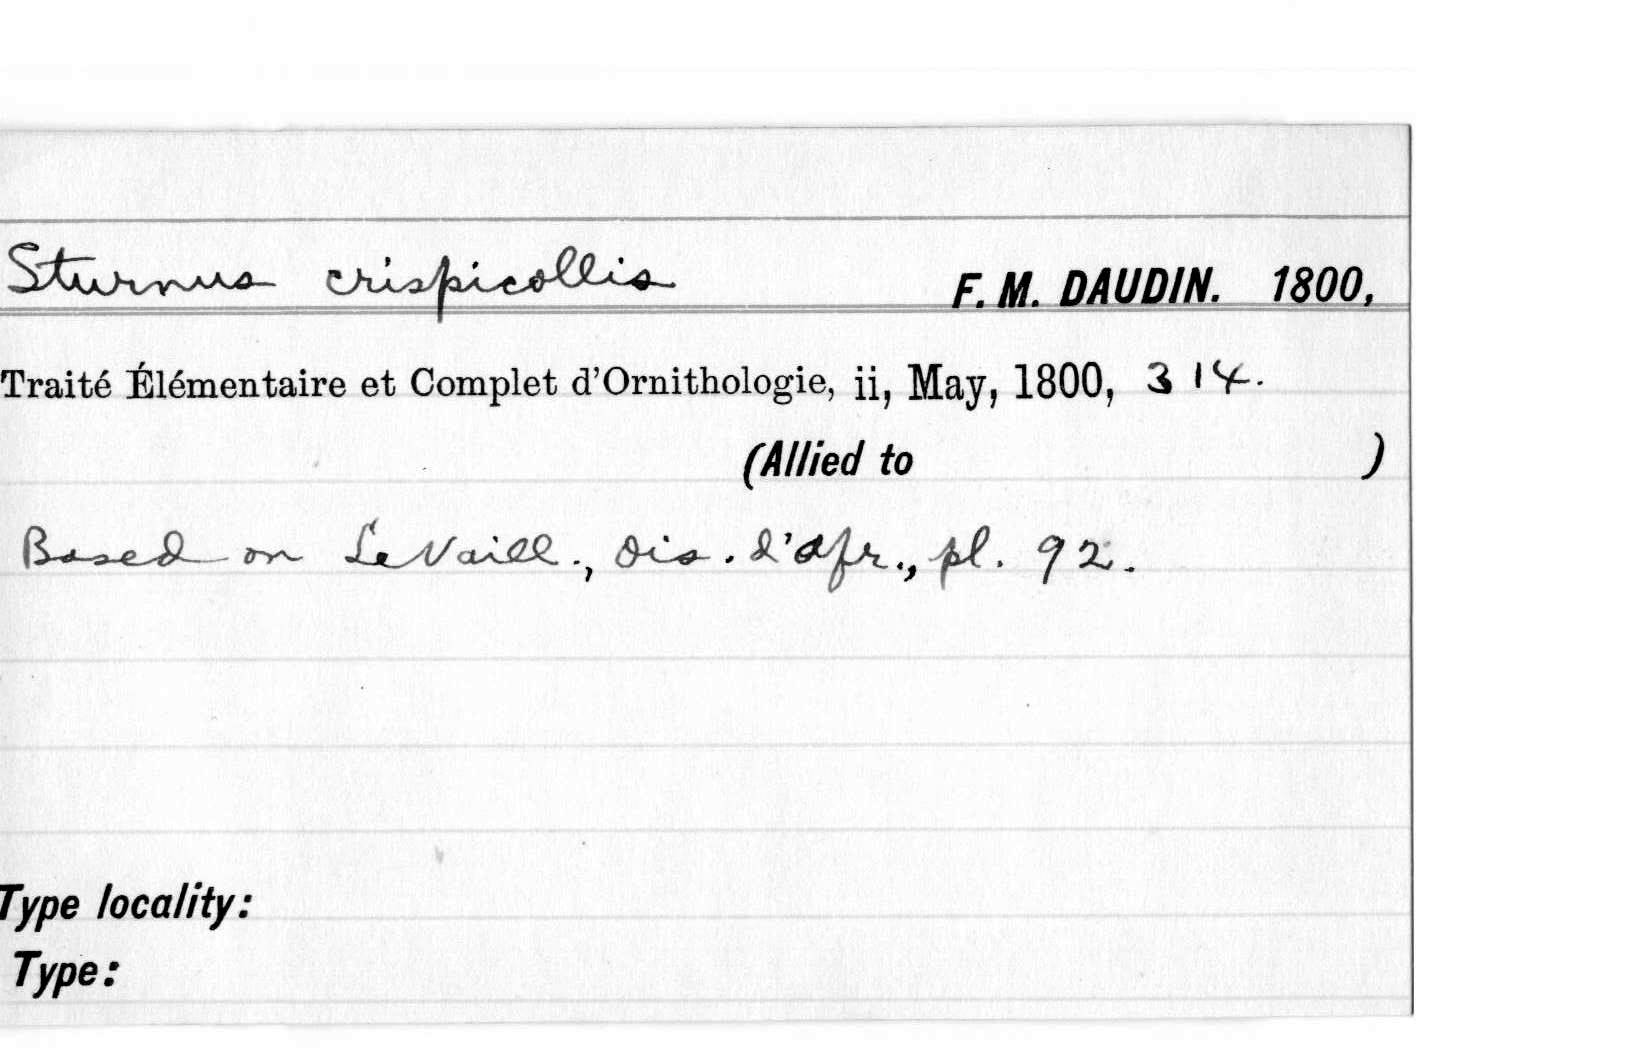 Sturnus crispicollis F. M. DAUDIN. 1800,
Traité Élémentaire et Complet d'Ornithologie, ii, May, 1800, 314.
(Allied to )
Based on Le Vaill., Ois. d'Afr., pl. 92.
Type locality:
Type: